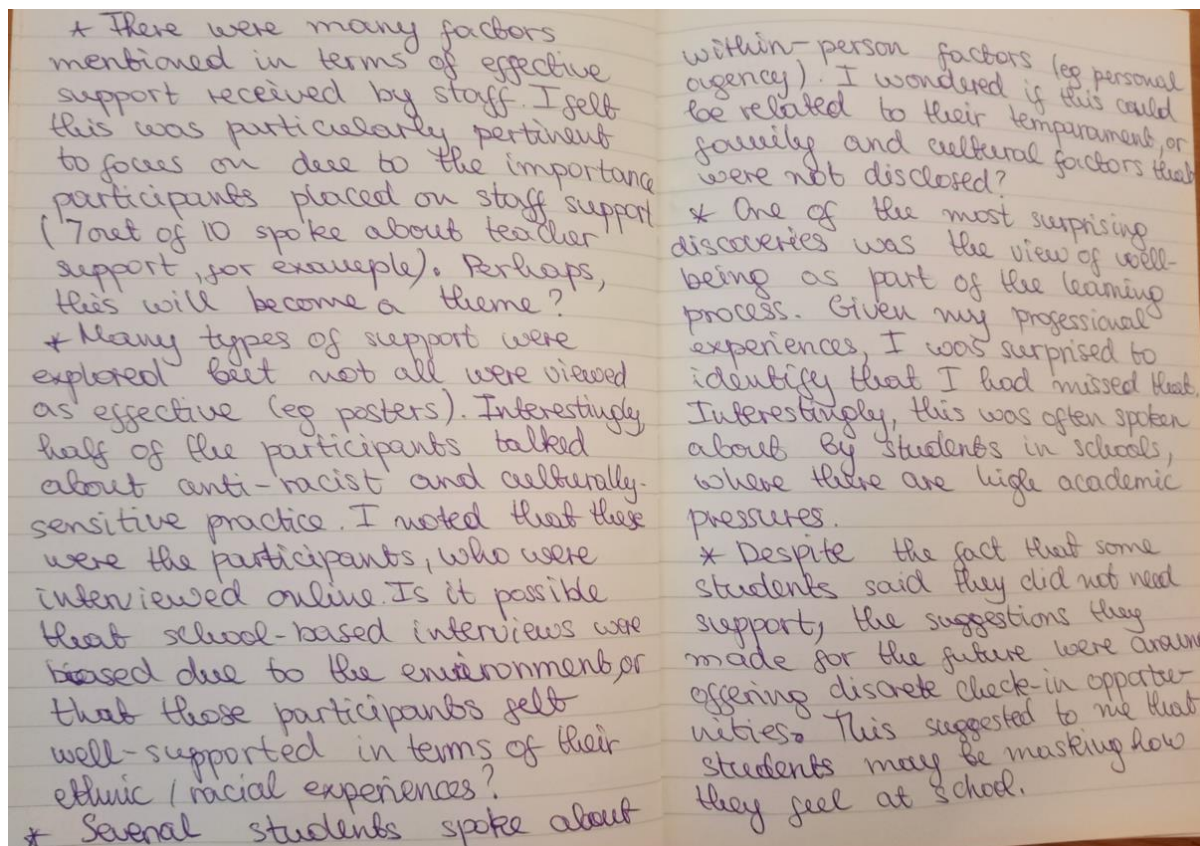 * There were many factors
mentioned in terms of effective
support received by staff. I felt
this was particularly pertinent
to focus on due to the importance
participants placed on staff support
(7 out of 10 spoke about teacher
support, for example). Perhaps,
this will become a theme?
* Many types of support were
explored but not all were viewed
as effective (eg posters). Interestingly,
half of the participants talked
about anti-racist and culturally-
sensitive practice. I noted that these
were the participants, who were
interviewed online. Is it possible
that school-based interviews were
biased due to the environment, or
that those participants felt
well-supported in terms of their
ethnic / racial experiences?
* Several students spoke about
within-person factors (eg personal
agency). I wondered if this could
be related to their temparament, or
family and cultural factors that
were not disclosed?
* One of the most surprising
discoveries was the view of well-
being as part of the learning
process. Given my professional
experiences, I was surprised to
identify that I had missed that.
Interestingly, this was often spoken
about by students in schools,
where there are high academic
pressures.
* Despite the fact that some
students said they did not need
support, the suggestions they
made for the future were aroun
offering discrete check-in opportu-
nities. This suggested to me that
students may be masking how
they feel at school.